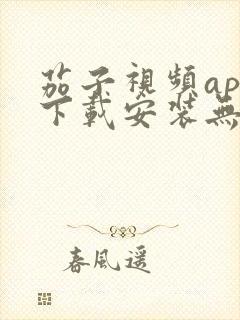 茄子視頻ap
下載安装無
春風遥